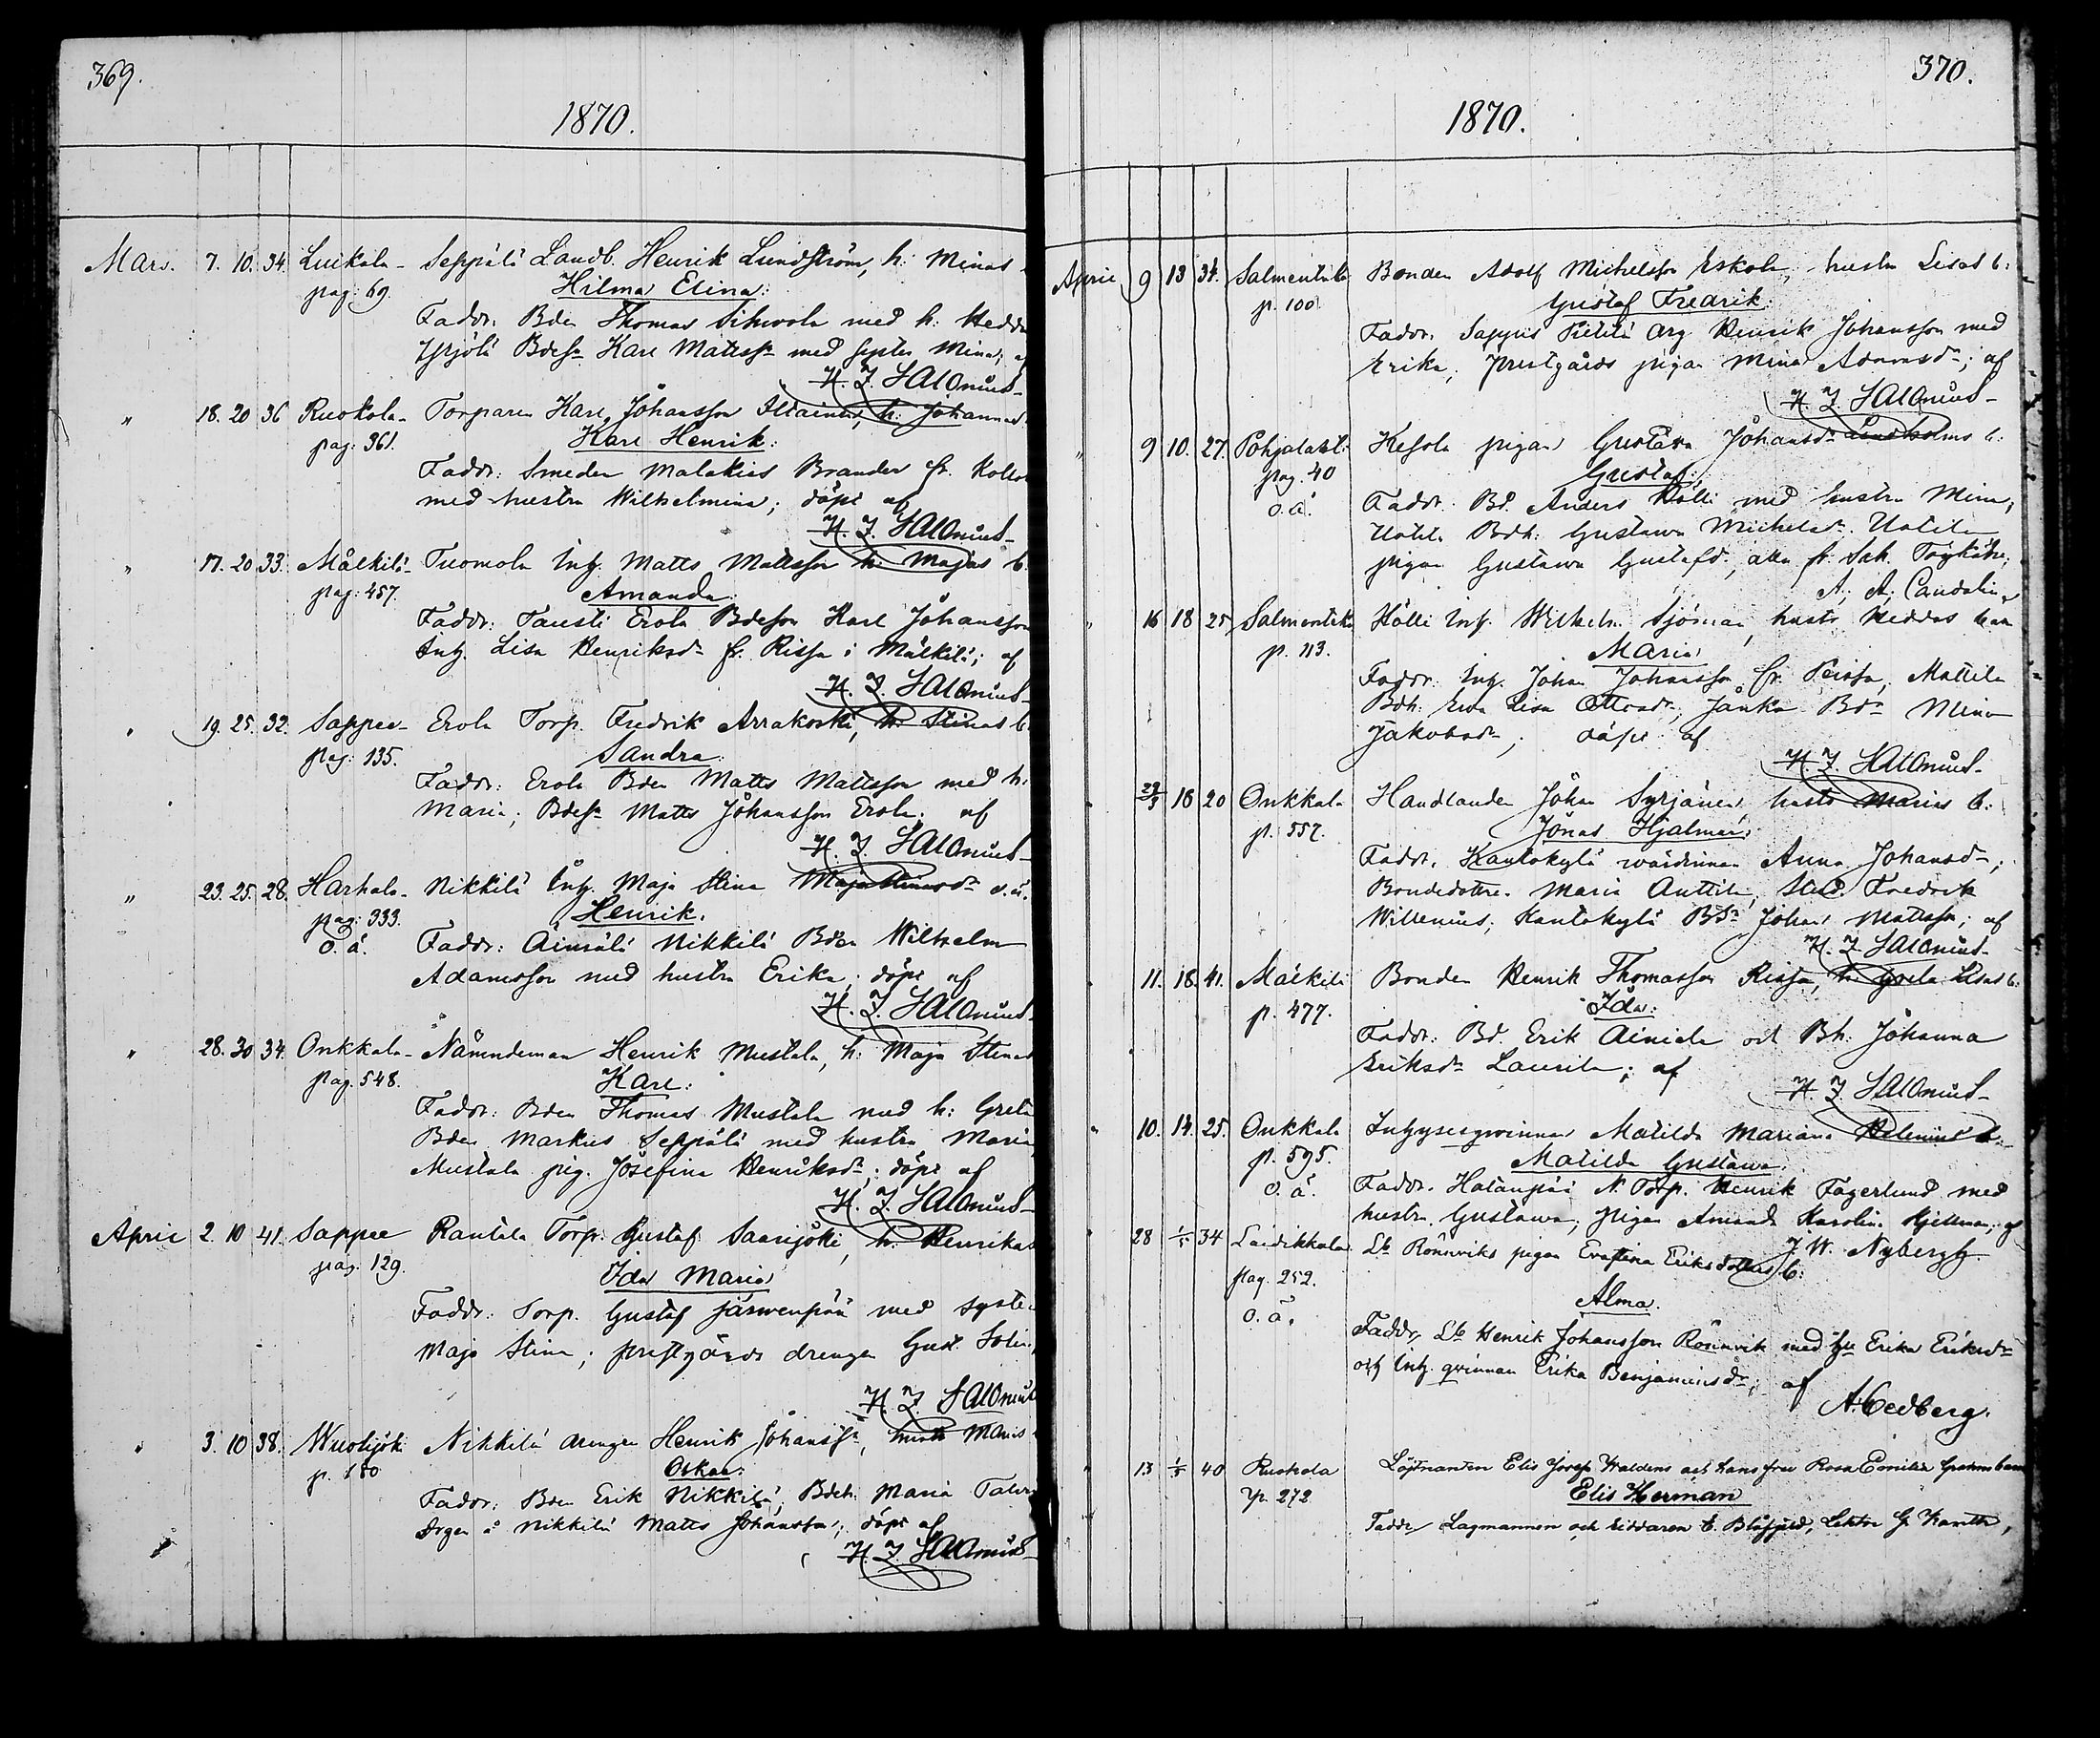 369.
1870.
Mars. 7. 10. 34. Luikala- Seppälä Landb. Henrik Lundström, h: Minas
pag: 69. Hilma Elina:
Faddr: Bden Thomas Sihvola med h: Hedda
Yrjölä Bdess Karl Mattss med syster Mina; af
H. J. Salonius
" 18. 20 36 Ruokola- Torparen Karl Johansson Illainen, h: Johannas
pag: 361. Karl Henrik:
Faddr: Smeden Malakias Brander fr.
med hustru Wilhelmina; döpt af
H. J. Salonius
" 17. 20 33. Mälkilä- Tuomola Inh. Matts Mattsson h: Majas b.
pag: 457. Amanda:
Faddr: Tausti Erola Bdeson Karl Johansson
Inh. Lisa Henriksdr fr. Rissa i Mälkilä; af
H. J. Salonius
" 19. 25. 32. Sappee- Erola Torp. Fredrik Arrakoski, h: Stinas b.
pag: 135. Sandra:
Faddr: Erola Bden Matts Mattsson med h:
Maria; Bdess Matts Johansson Erola; af
H. J. Salonius
" 23. 25. 28. Harhala- Nikkilä Inh. Maja Stina o.ä.
pag: 333. Henrik.
o. ä. Faddr: Äimälä Nikkilä Bden Wilhelm
Adamsson med hustru Erika; döpt af
H. J. Salonius
" 28. 30 34. Onkkala- Nämndeman Henrik Mustala, h: Maja Stinas
pag. 548. Karl:
Faddr: Bden Thomas Mustala med h: Greta
Bden Markus Seppälä med hustru Maria
Mustala pig. Josefina Henriksdr; döpt af
H. J. Salonius
April 2. 10 41. Sappee Rantala Torp. Gustaf Saarijoki, h: Henrikas
pag. 129. Ida Maria
Faddr: Torp. Gustaf Järvenpää med syster
Maja Stina; prestgårds drengen Gust.
H. J. Salonius
" 3. 10 38. Wuolijoki Nikkilä drengen Henrik Johanss, hustr Marias
p. 180 Oskar:
Faddr: Bden Erik Nikkilä, Bdeh: Maria
drgen å Nikkilä Matts Johansson; döpt af
H. J. Salonius
370.
1870.
April 9 13 34. Salmentaka Bonden Adolf Michelsson Eskola, hustru Lisas b:
p. 100. Gustaf Fredrik:
Faddr. Sappee Pietilä drg Henrik Johansson med
Erika; prestgårds pigan Mina Adamsdr; af
H. J. Salonius
" 9 10. 27. Pohjalahti Kessola pigan Gustava Johansdr Lindholms b:
pag. 40 Gustaf:
o. ä. Faddr. Bd. Anders Hölli med hustru Mina,
Uotila Bdh: Gustava Michelsdr Uotila
pigan Gustava Gustafsdr, alla fr. Sah.
A. A. Candolin
" 16 18 25 Salmentaka Hölli Inh. Wilhelm Sjöman, hustr Heddas barn
p. 113. Maria
Faddr: Inh. Johan Johansson fr. Peissa, Mattila
Bdh: Eva Lisa Ottosdr, Jänkä Bdr Mina
Jakobsdr; döpt af
H. J. Salonius
" 29/3 18 20 Onkkala Handlanden Johan Syrjänen, hustr Marias b:
p. 557. Jonas Hjalmar:
Faddr. Kantokylä värdinnan Anna Johansdr;
Bondedottr. Maria Anttila, Stud. Fredrik
Willenius, Kantokylä Bds Johan Mattsson; af
H. J. Salonius
" 11. 18. 41. Mälkilä Bonden Henrik Thomasson Rissa, h: Greta Lisas b:
p. 477. Ida:
Faddr: Bd. Erik och Bh. Johanna
Eriksdr Laurila; af
H. J. Salonius
" 10. 14. 25. Onkkala Inhysesqvinnan Matilda Mariana Helenius b:
p. 595. Matilda Gustava.
o. ä. Faddr. N. Torp. Henrik Fagerlund med
hustru Gustava; pigan Amanda Karolina Hjellman; af
J. W. Nybergh.
" 28 1/5 34 Laidikkala Lb Rönnviks pigan Evastina Eriksdotters b:
pag. 252. Alma.
o. ä. Faddr, Lb Henrik Johansson Rönnvik med hu Erika Eriksdr
och Inh. qvinnan Erika Benjaminsdr; af
A. Cedberg.
" 13 1/5 40 Ruokola Löjtnanten Elis Josep Waldens och hans fru Rosa Emilia barn
p. 272 Elis Herman
Faddr Lagmannen och riddaren E. Blåfjeld, Lektor G.